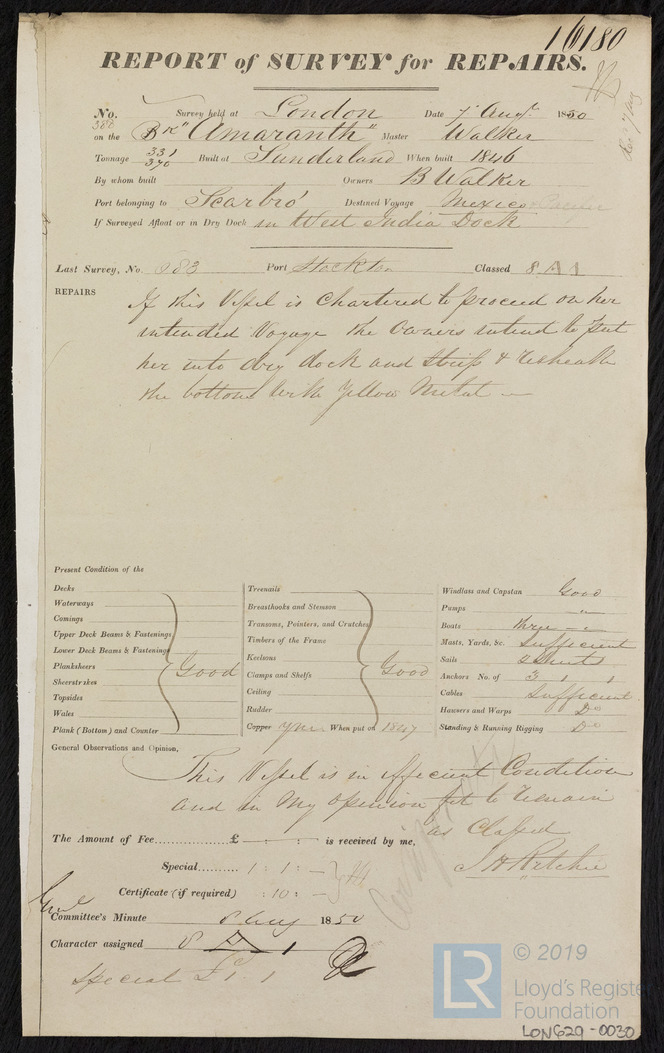 16180
REPORT of SURVEY for REPAIRS.
No. 386 Survey held at London Date 7 Augt. 1850
on the Bk "Amaranth" Master Walker
Tonnage 331 370 Built at Sunderland When built 1846
By whom built Owners B Walker
Port belonging to Scarbro' Destined Voyage Mexico
If Surveyed Afloat or in Dry Dock in West India Dock
Last Survey, No. 683 Port Stockton Classed 8 A 1
REPAIRS
If this Vessel is Chartered to proceed on her
intended Voyage the Owners intend to put
her into dry dock and strip & resheath
the bottom with Yellow Metal —
Present Condition of the
Decks
Waterways
Comings
Upper Deck Beams & Fastenings
Lower Deck Beams & Fastenings
Planksheers
Sheerstrakes
Topsides
Wales
Plank (Bottom) and Counter
Good
Treenails
Breasthooks and Stemson
Transoms, Pointers, and Crutches
Timbers of the Frame
Keelsons
Clamps and Shelfs
Ceiling
Rudder
Copper When put on 1847
Good
Windlass and Capstan Good
Pumps "
Boats three
Masts, Yards, &c. Sufficient
Sails
Anchors No. of 3
Cables Sufficient
Hawsers and Warps Do
Standing & Running Rigging Do
General Observations and Opinion,
This Vessel is in efficient Condition
and in my opinion fit to remain
as Classed
The Amount of Fee £ is received by me,
Special 1 : 1 : —
Certificate (if required) : 10 : —
J H Ritchie
Committee's Minute 8 Aug 1850
Character assigned 8 A 1
Special
© 2019
LR
Lloyd's Register
Foundation
LON629-0030